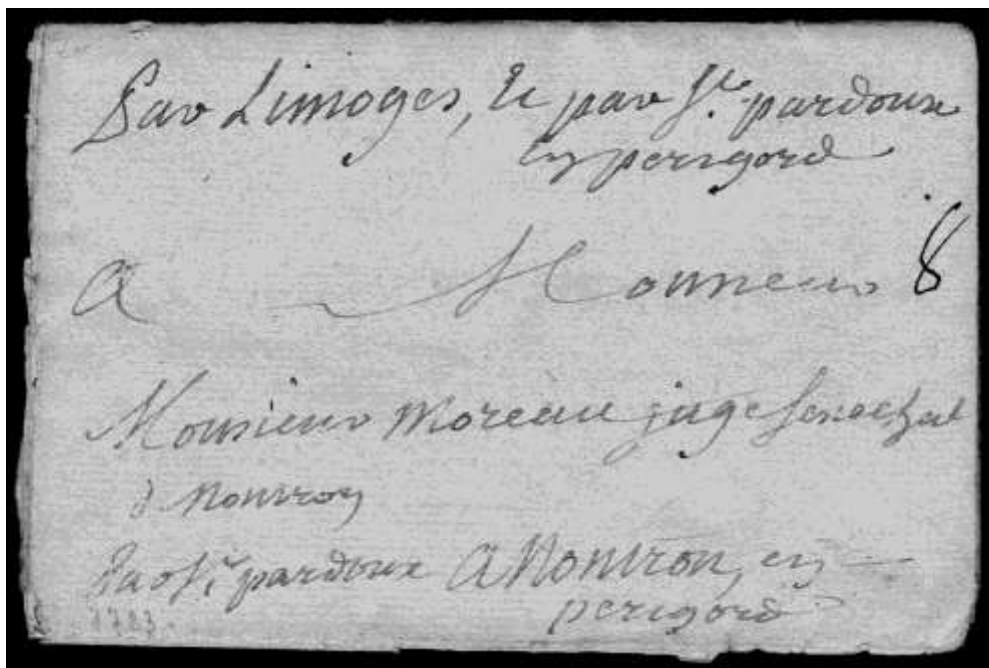 Par Limoges, et par St. pardoux
en perigord
8
A Monsieur
Monsieur Moreau juge senechal
d Nontron
par St. pardoux A Nontron, en
perigord
1723.